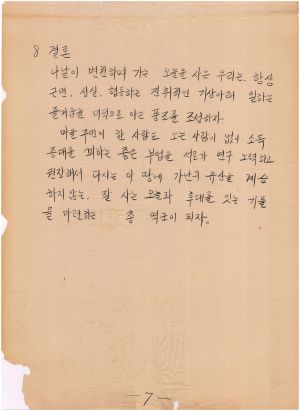 8 결론
나날이 변천하여 가는 오늘을 사는 우리는, 항상
근면, 성실, 협동하는 진취적인 기상아래 일하는
즐거움을 미덕으로 아는 풍조를 조성하자.
마을 주민이 한 사람도 노는 사람이 없이 소득
증대를 꾀하는 좋은 부업을 서로가 연구 노력하고
권장해서 다시는 이 땅에 가난의 유산을 계승
하지 않는, 잘 사는 오늘과 후대를 잇는 기틀
을 마련하는 역군이 되자.
-7-